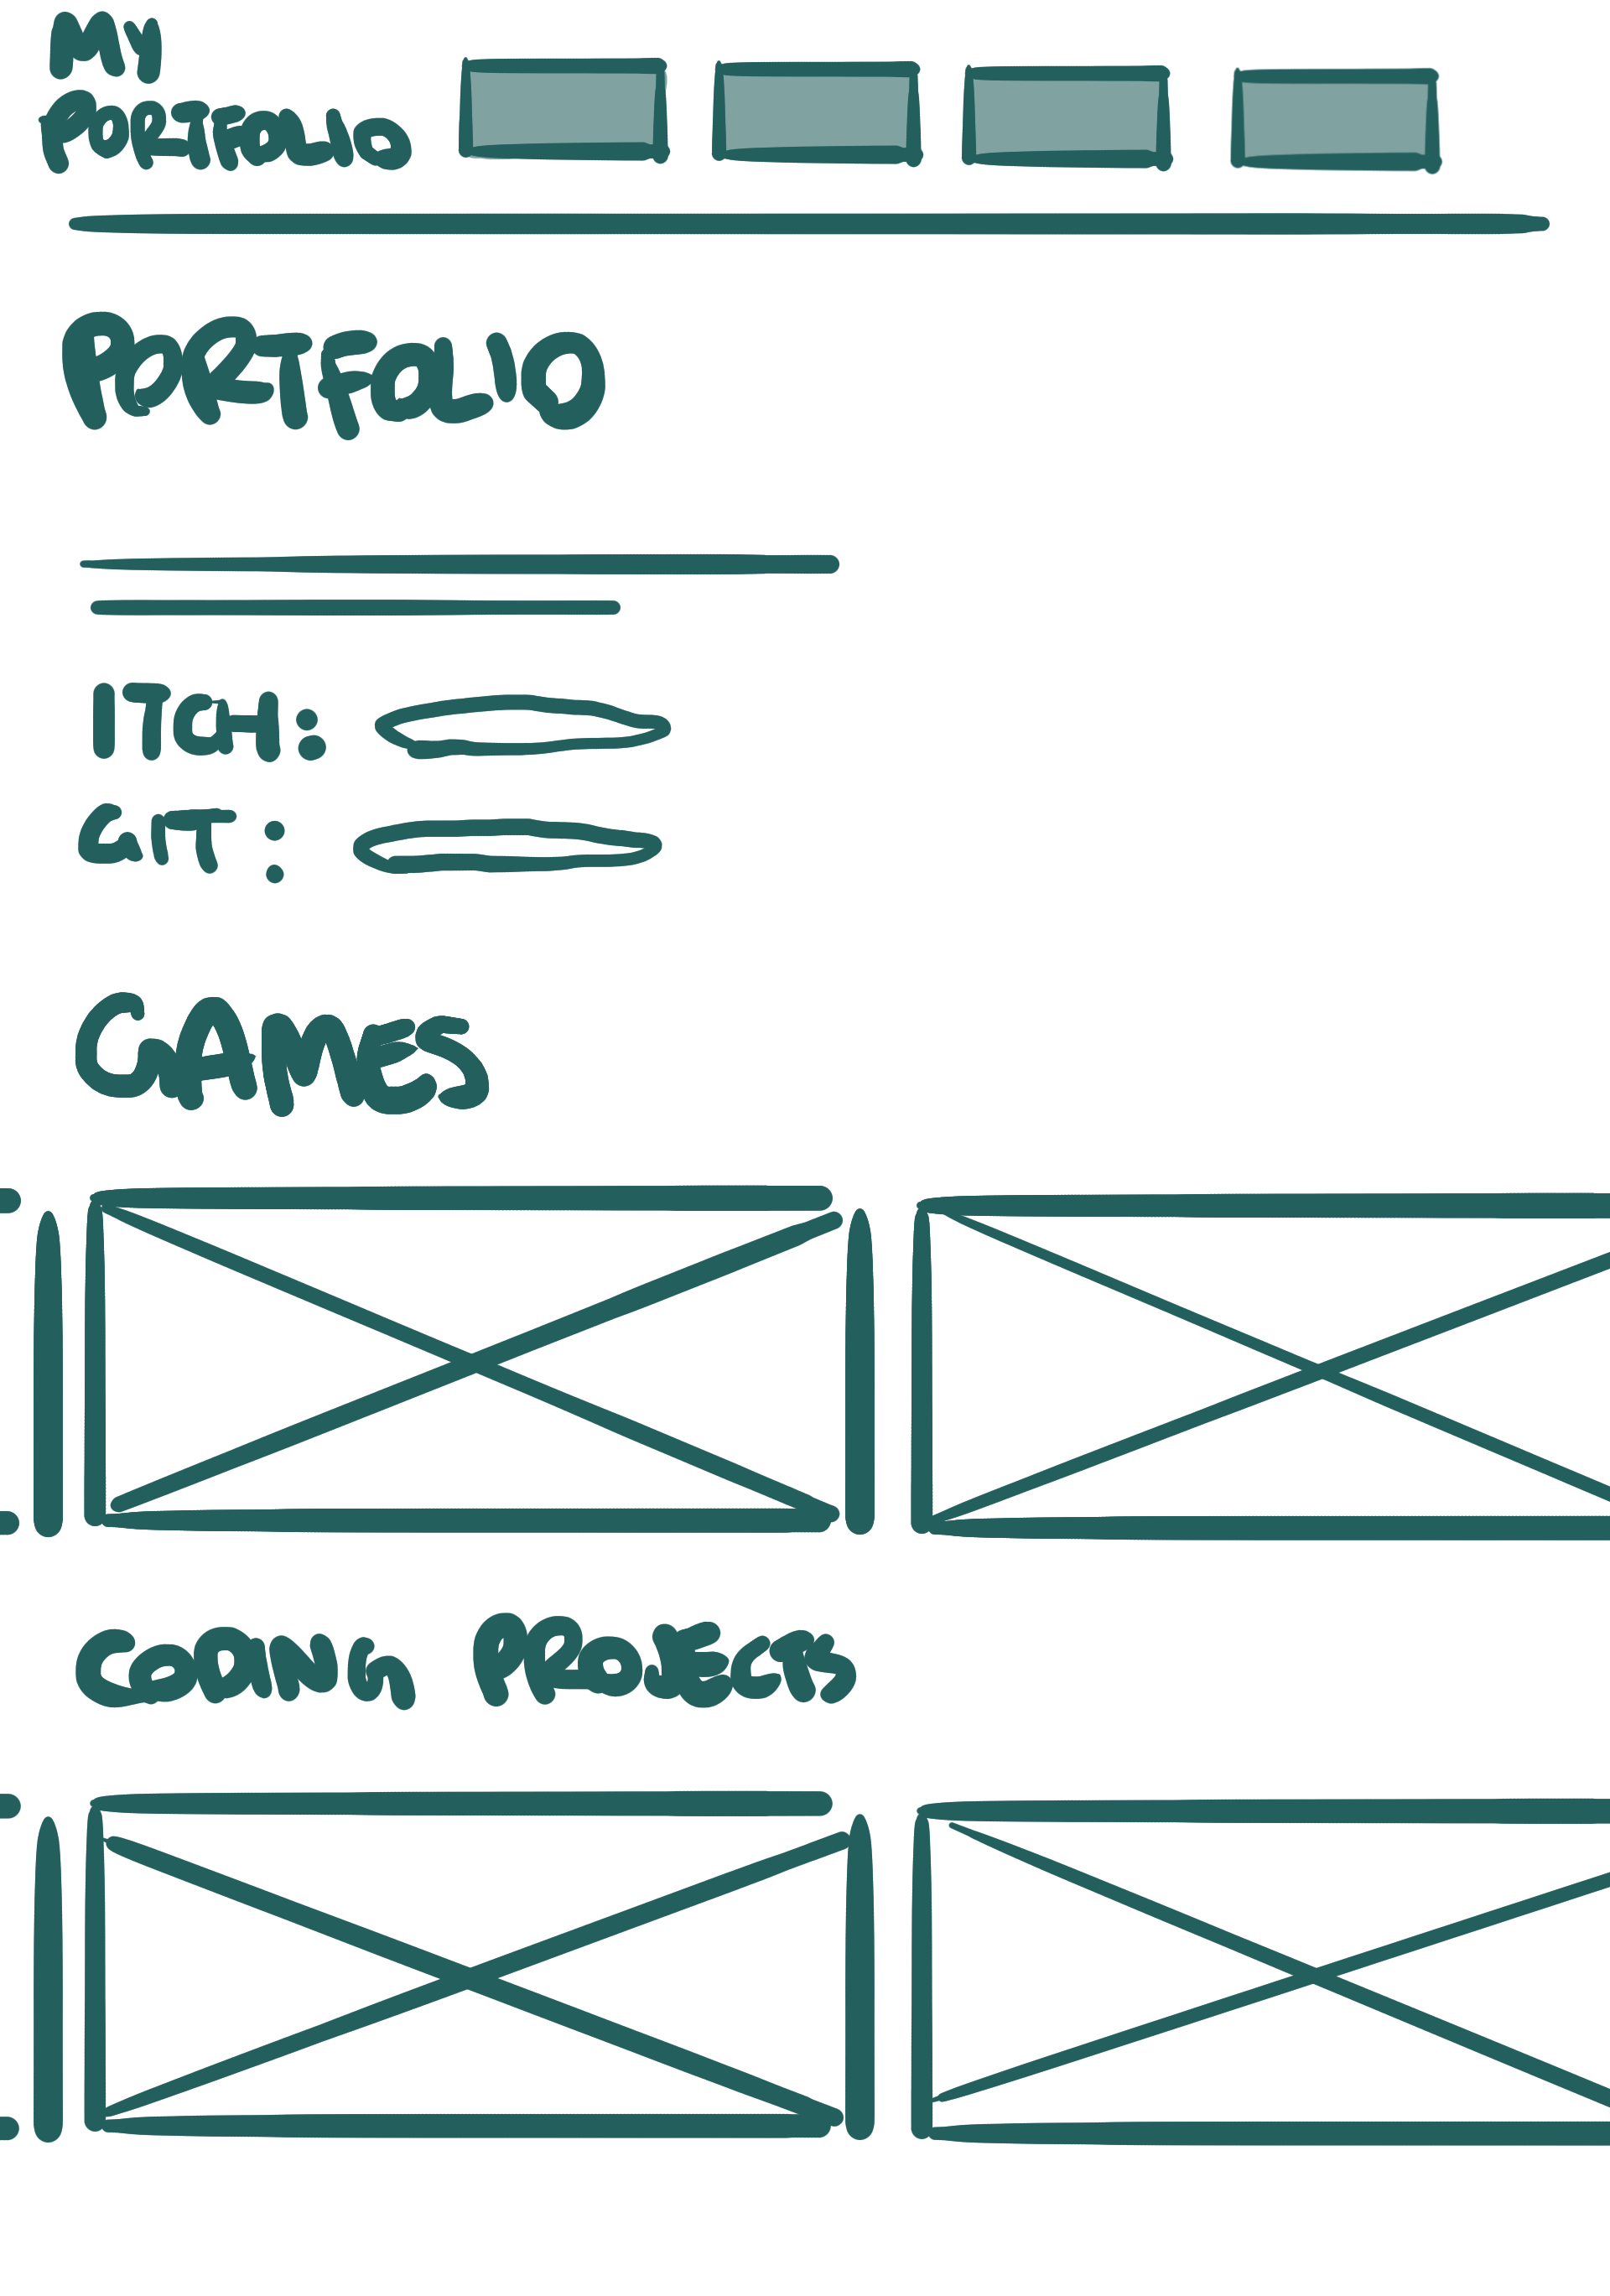 MY
PORTFOLIO
PORTFOLIO
ITCH:
GIT:
GAMES
CODING PROJECTS